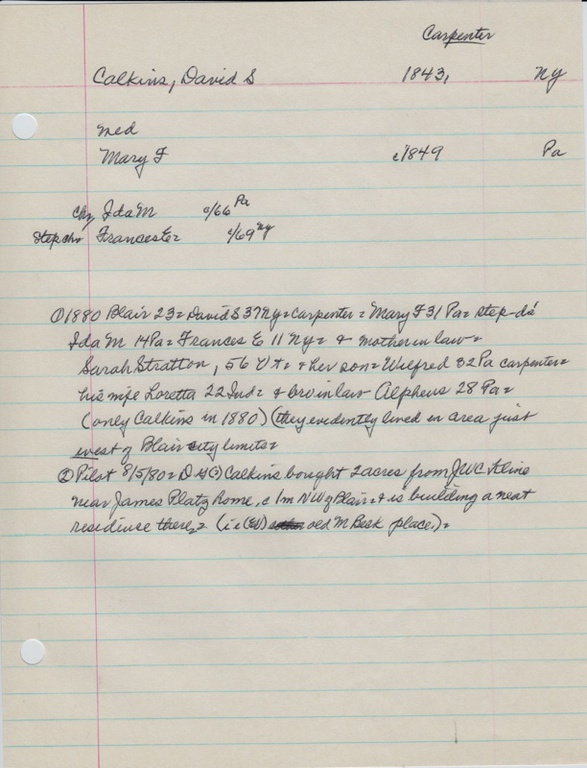 Carpenter
Calkins, David S 1843, Ny
med
Mary F c1849 Pa
Ch= Ida M c/66 Pa
Step ch= Frances E= c/69 Ny
① 1880 Blair 23= David S 37 Ny= carpenter= Mary F 31 Pa= step-ds'
Ida M 14 Pa= Frances E 11 Ny= & mother in law=
Sarah Stratton, 56 Vt= & her son= Wilfred 32 Pa carpenter=
his wife Loretta 22 Ind= & bro in law Alpheus 28 Pa=
(only Calkins in 1880) (they evidently lived in area just
west of Blair city limits=
② Pilot 8/5/80= D (?) Calkins bought 2 acres from JWC Kline
near James Platz home, c 1m NW of Blair= & is building a neat
residense there= (i e old M Beck place.)=